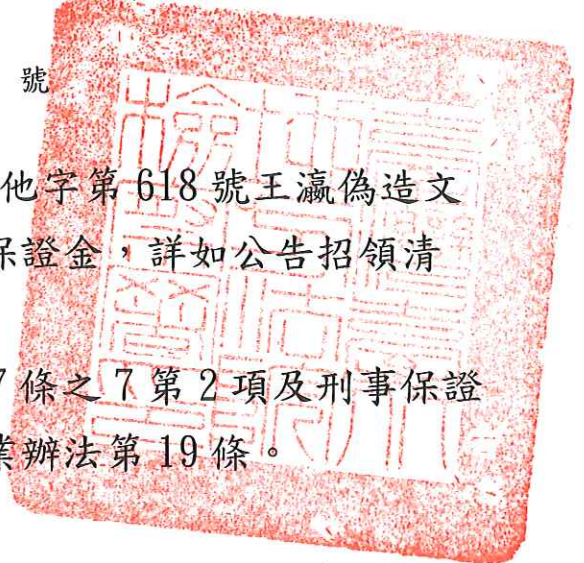 號
他字第 618 號王瀛偽造文
保證金，詳如公告招領清
7 條之 7 第 2 項及刑事保證
業辦法第 19 條。